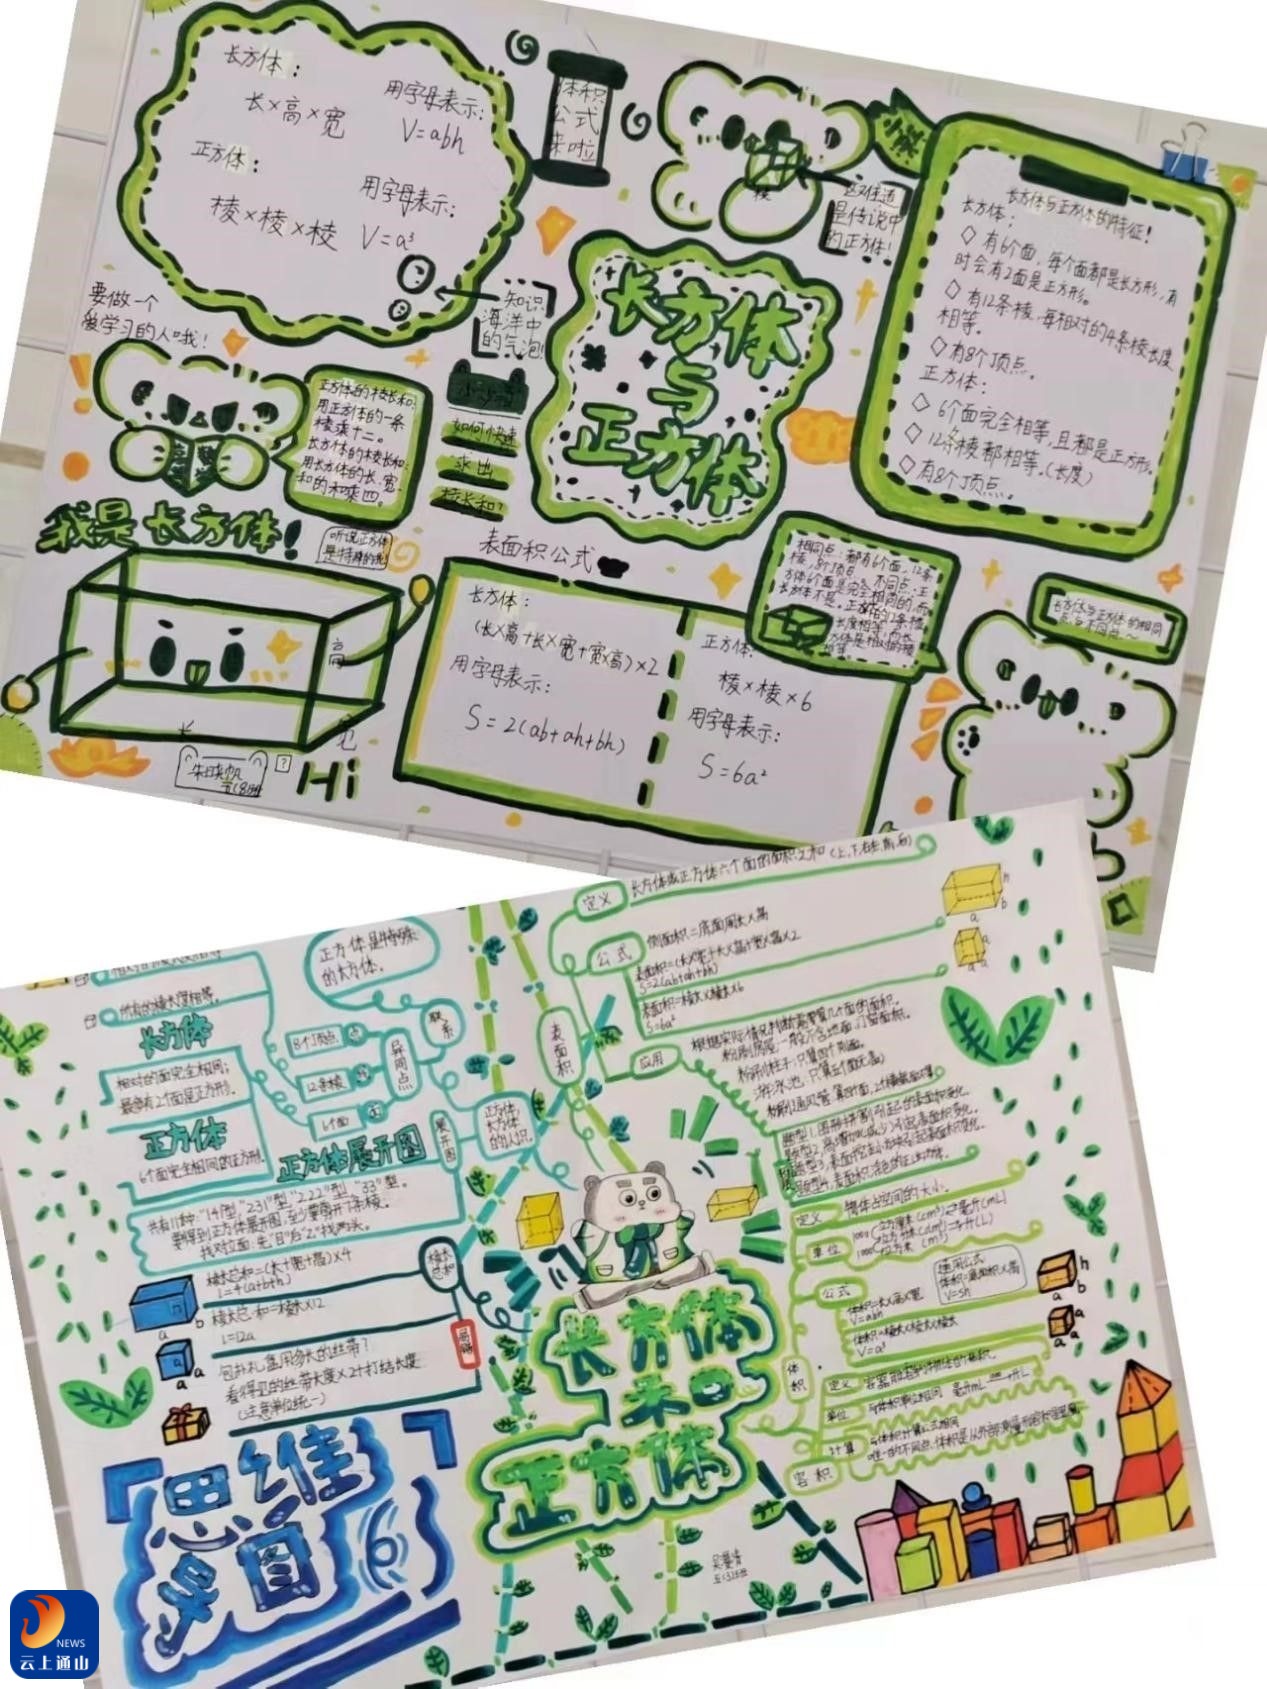 长方体：
长×高×宽
用字母表示：
V=abh
正方体：
棱×棱×棱
用字母表示：
V=a³
体积
公式
来啦
知识
海洋中
的气泡!
这对住这
是传说中
的正方体!
棱
长方体与正方体的特征!
长方体：
◇有6个面，每个面都是长方形，有
时会有2面是正方形。
◇有12条棱，每相对的4条棱长度
相等。
◇有8个顶点。
正方体：
◇6个面完全相等，且都是正方形。
◇12条棱都相等。(长度)
◇有8个顶点。
长方体
与
正方体
要做一个
爱学习的人哦!
正方体的棱长和：
用正方体的一条
棱乘十二。
长方体的棱长和：
用长方体的长、宽
和的和乘四。
如何快速
求出
棱长和?
我是长方体!
听说正方体
是特殊的我
高
长
宽
Hi
表面积公式
长方体：
(长×高+长×宽+宽×高)×2
用字母表示：
S=2(ab+ah+bh)
正方体：
棱×棱×6
用字母表示：
S=6a²
相同点：都有6个面，12条
棱，8个顶点 不同点：正
方体6个面是完全相同的，而
长方体不是。
长方体与正方体的相同
点与不同点～
定义 长方体或正方体六个面的面积之和(上,下,左,右,前,后)
公式 侧面积=底面周长×高
表面积=(长×宽+长×高+宽×高)×2
S=2(ab+ah+bh)
表面积=棱长×棱长×6
S=6a²
应用 根据实际情况判断需要算几个面的面积。
表面积
正方体是特殊
的长方体。
联系
所有的棱长度相等。
长方体
相对的面完全相同；
最多有2个面是正方形。
正方体
6个面完全相同的正方形。
8个顶点
12条棱
6个面
异同点
展开图
正方体,
长方体
的认识
正方体展开图
共有11种："141"型，"231"型，"222"型，"33"型。
要得到正方体展开图，至少要剪开7条棱。
找对立面：先"目"后"Z"找两头。
棱长总和=(长+宽+高)×4
L=4(a+b+h)
棱长总和=棱长×12
L=12a
棱长
总和
包扎礼盒用多长的丝带?
看得见的丝带长度×2+打结长度
(注意单位统一)
定义 物体占空间的大小。
单位
公式 体积=长×宽×高
V=abh
体积=棱长×棱长×棱长
V=a³
通用公式
体积=底面积×高
V=Sh
体积
定义 容器所能容纳物体的体积。
单位 与体积单位相同 毫升mL 升L
计算 与体积计算公式相同
容积
长方体
和
正方体
思维
导图
NEWS
云上通山